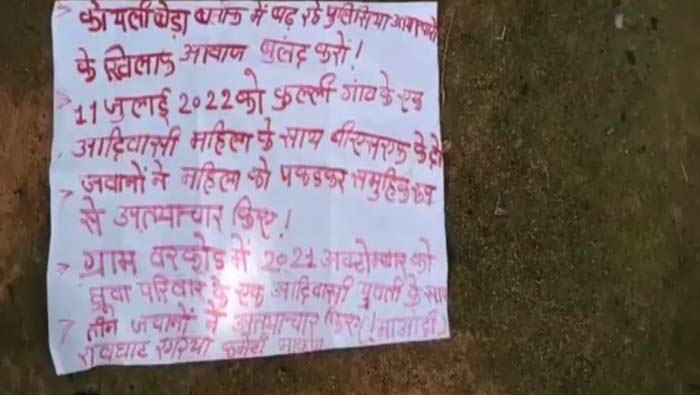 कोयलीबेड़ा ब्लाक में बाढ़ रहे पुलिसिया
के खिलाफ आवाज बुलंद करो!
11 जुलाई 2022 को कुल्ली गांव के एक
आदिवासी महिल के साथ बीएसएफ के दो
जवानों ने महिल को पकडकर समुहिक रूप
से अतयाचार किए!
ग्राम वरकोड में 2021 अक्टोम्बार को
ध्रुवा परिवार के एक आदिवासी युवती के साथ
तीन जवानों ने अतयाचार किए (माओवादी)
रावघाट एरिया कमेटी